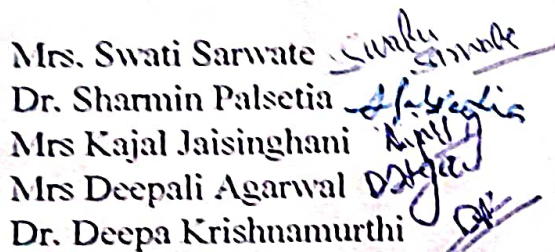 Mrs. Swati Sarwate Swati Sarwate
Dr. Sharmin Palsetia
Mrs Kajal Jaisinghani
Mrs Deepali Agarwal
Dr. Deepa Krishnamurthi